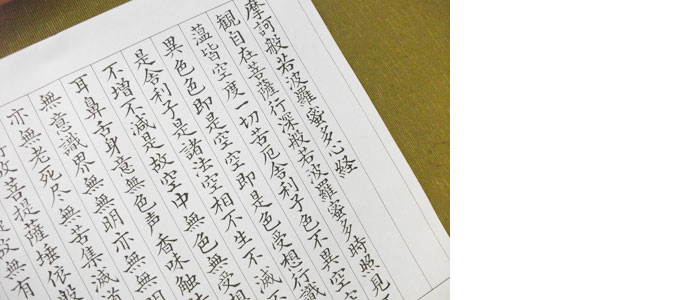 摩訶般若波羅蜜多心経
観自在菩薩行深般若波羅蜜多時照見
蕰皆空度一切苦厄舎利子色不異空空
異色色即是空空即是色受想行識
是舎利子是諸法空相不生不滅不
不増不減是故空中無色無受想
耳鼻舌身意無色声香味触
無意識界無無明亦無無
亦無老死尽無苦集滅道
故菩提薩埵依般
故無有